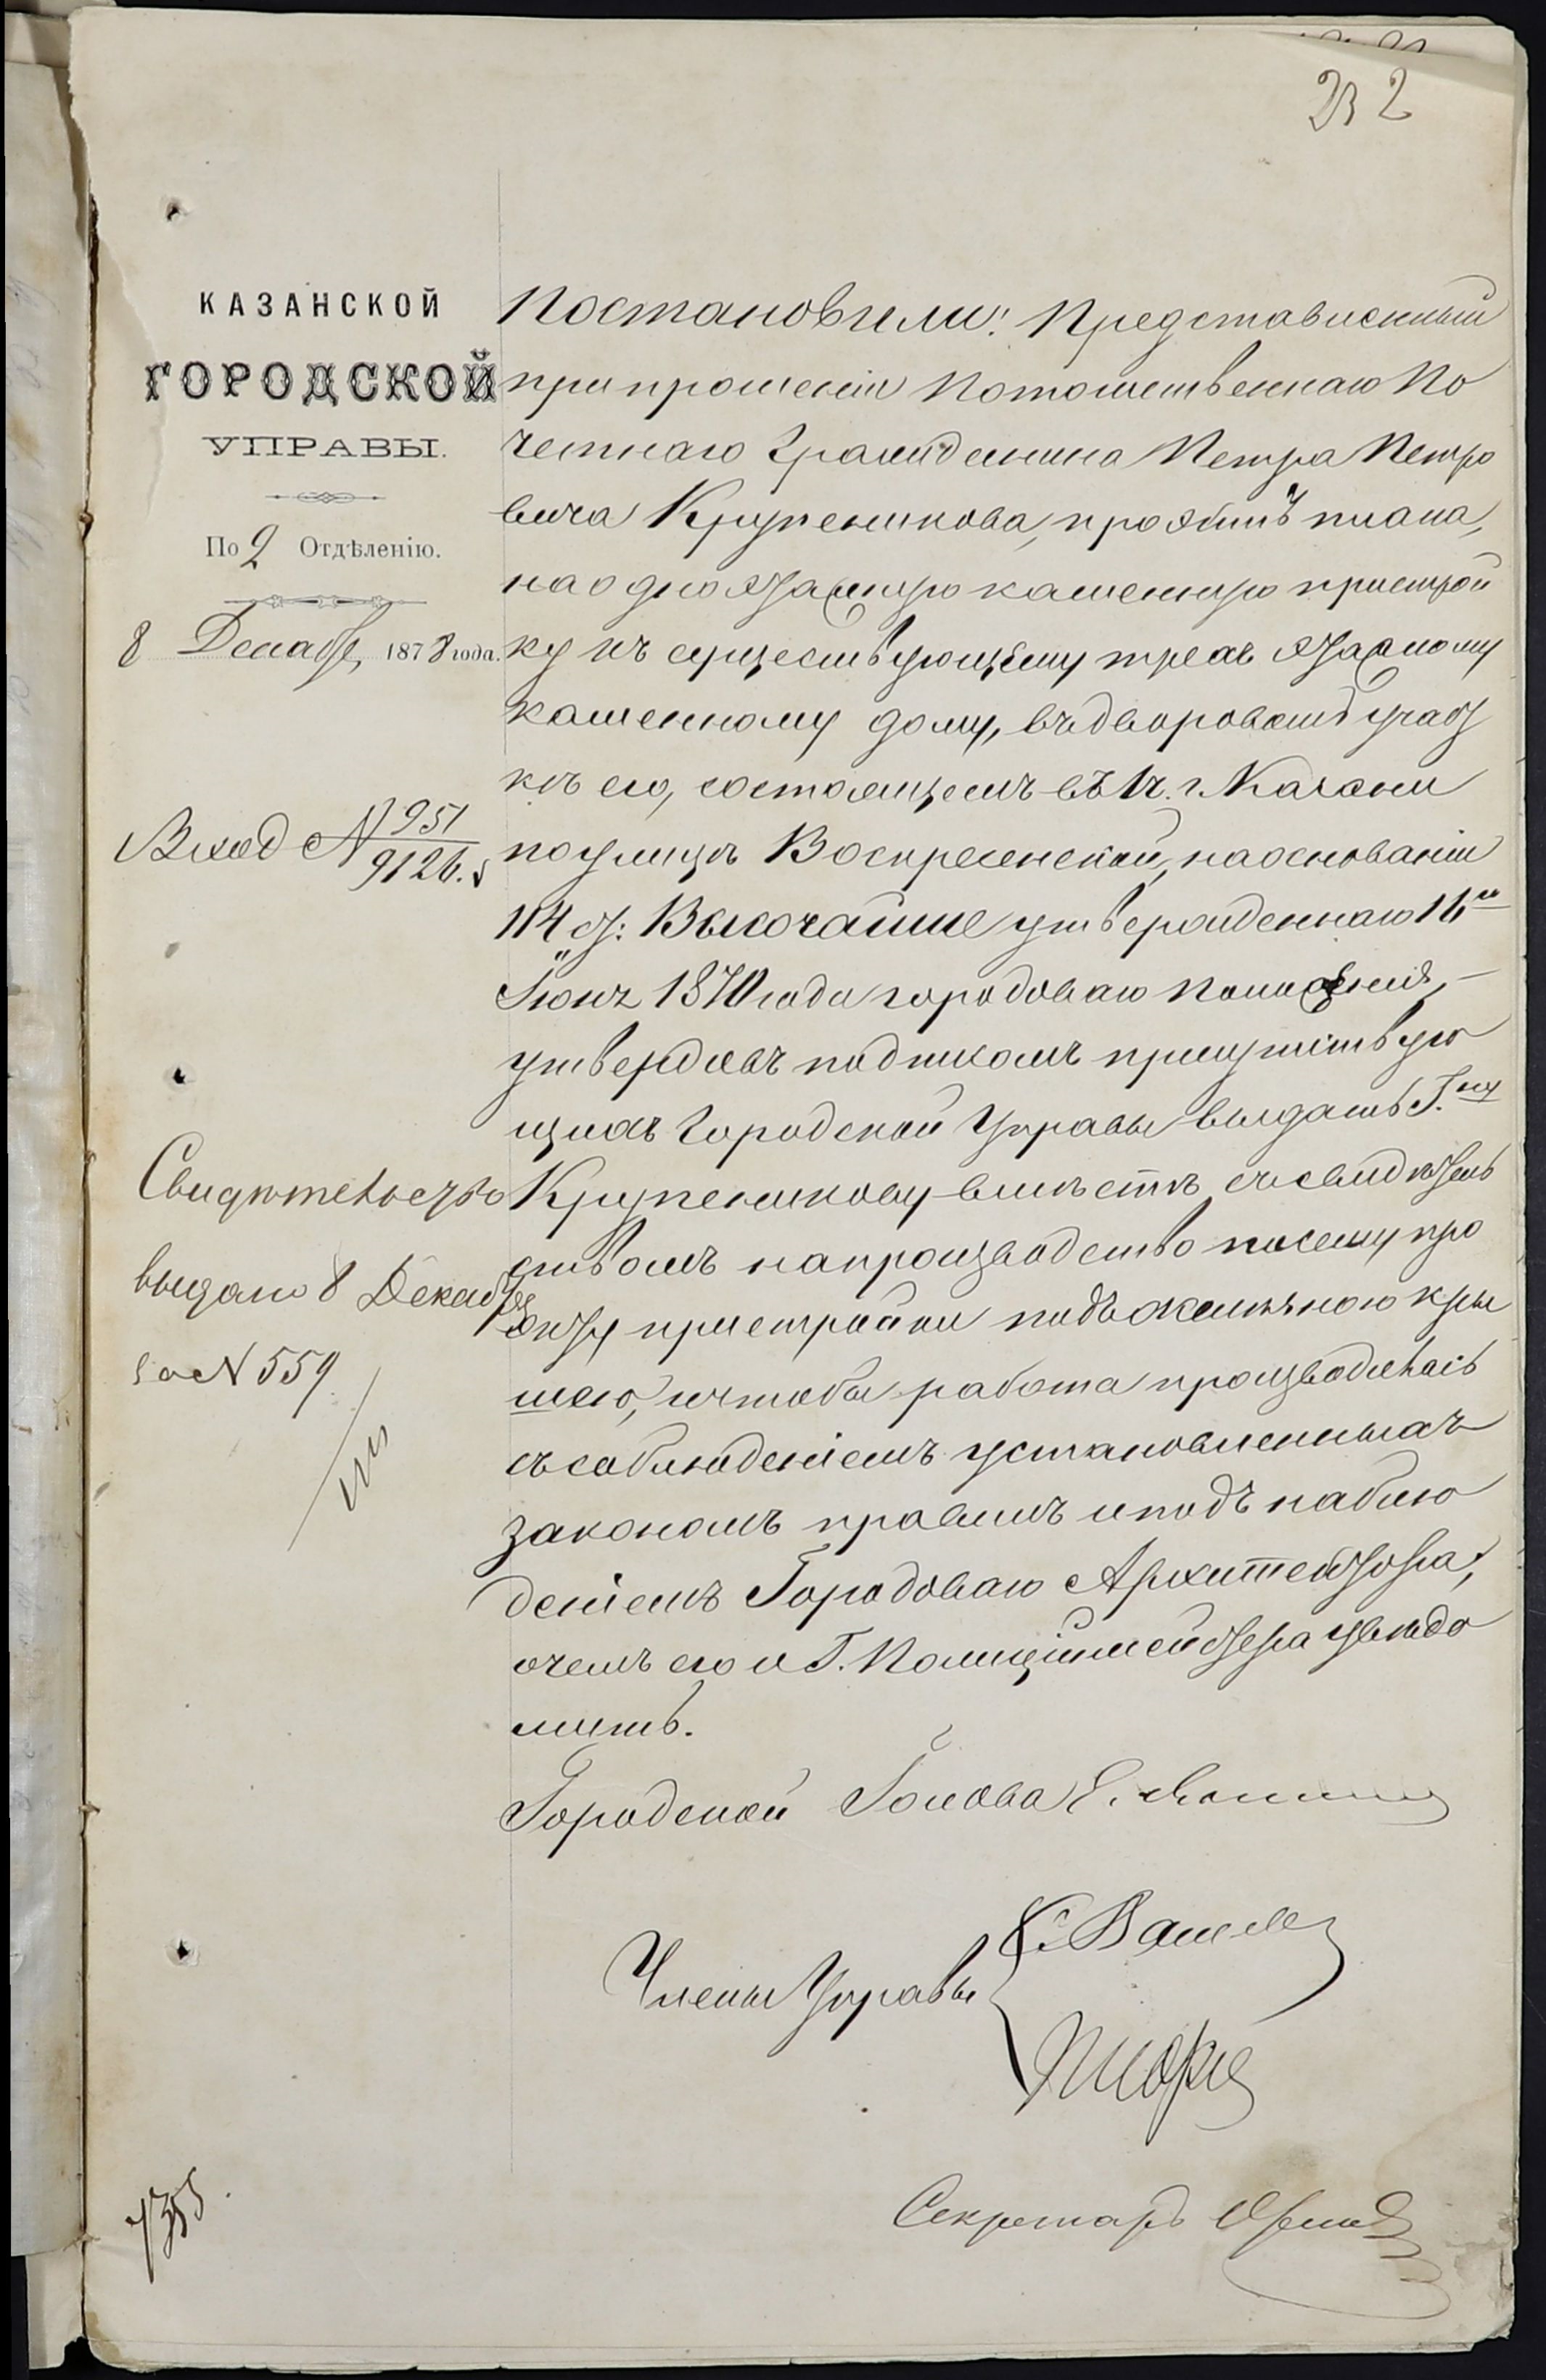 2
КАЗАНСКОЙ
ГОРОДСКОЙ
УПРАВЫ.
По 2 Отдѣленію.
8 Декабр, 1878 года.
Вход № 951
9126.
Свидѣтельство
выдано 8 Декабря
за № 559
7355
Постановили: Представленный
при прошеніи Потомственнаго По
четнаго Гражданина Петра Петро
вича Крупеникова, проэктъ плана,
на одноэтажную каменную пристрой
ку къ существующему трехъ этажному
каменному дому, въ дворовомъ участ
кѣ его, состоящемъ въ 1 ч. г. Казани
по улицѣ Воскресенской, на основаніи
114 ст: Высочайше утвержденнаго 16го
Іюня 1870 года городоваго положенія,
утвердивъ подписомъ присутствую
щихъ Городской Управы выдать Г.ну
Крупеникову вмѣстѣ съ свидѣтель
ствомъ на производство по сему про
экту пристройки подъ желѣзною кры
шею, и чтобы работа производилась
съ соблюденіемъ установленныхъ
закономъ правилъ и подъ наблю
деніемъ Городоваго Архитектора;
о чемъ его и Г. Полиціймейстера увѣдо
мить.
Городской Голова Е.
Члены Управы
Секретарь